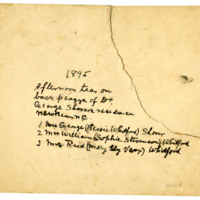 1895
Afternoon tea on
back piazza of Dr.
George Shove's residence
1 Mrs George (Bessie Whitford) Shove
2 Mrs William (Sophie Stevenson) Whitford
3 Mrs Reid (Mary Ely Vars) Whitford